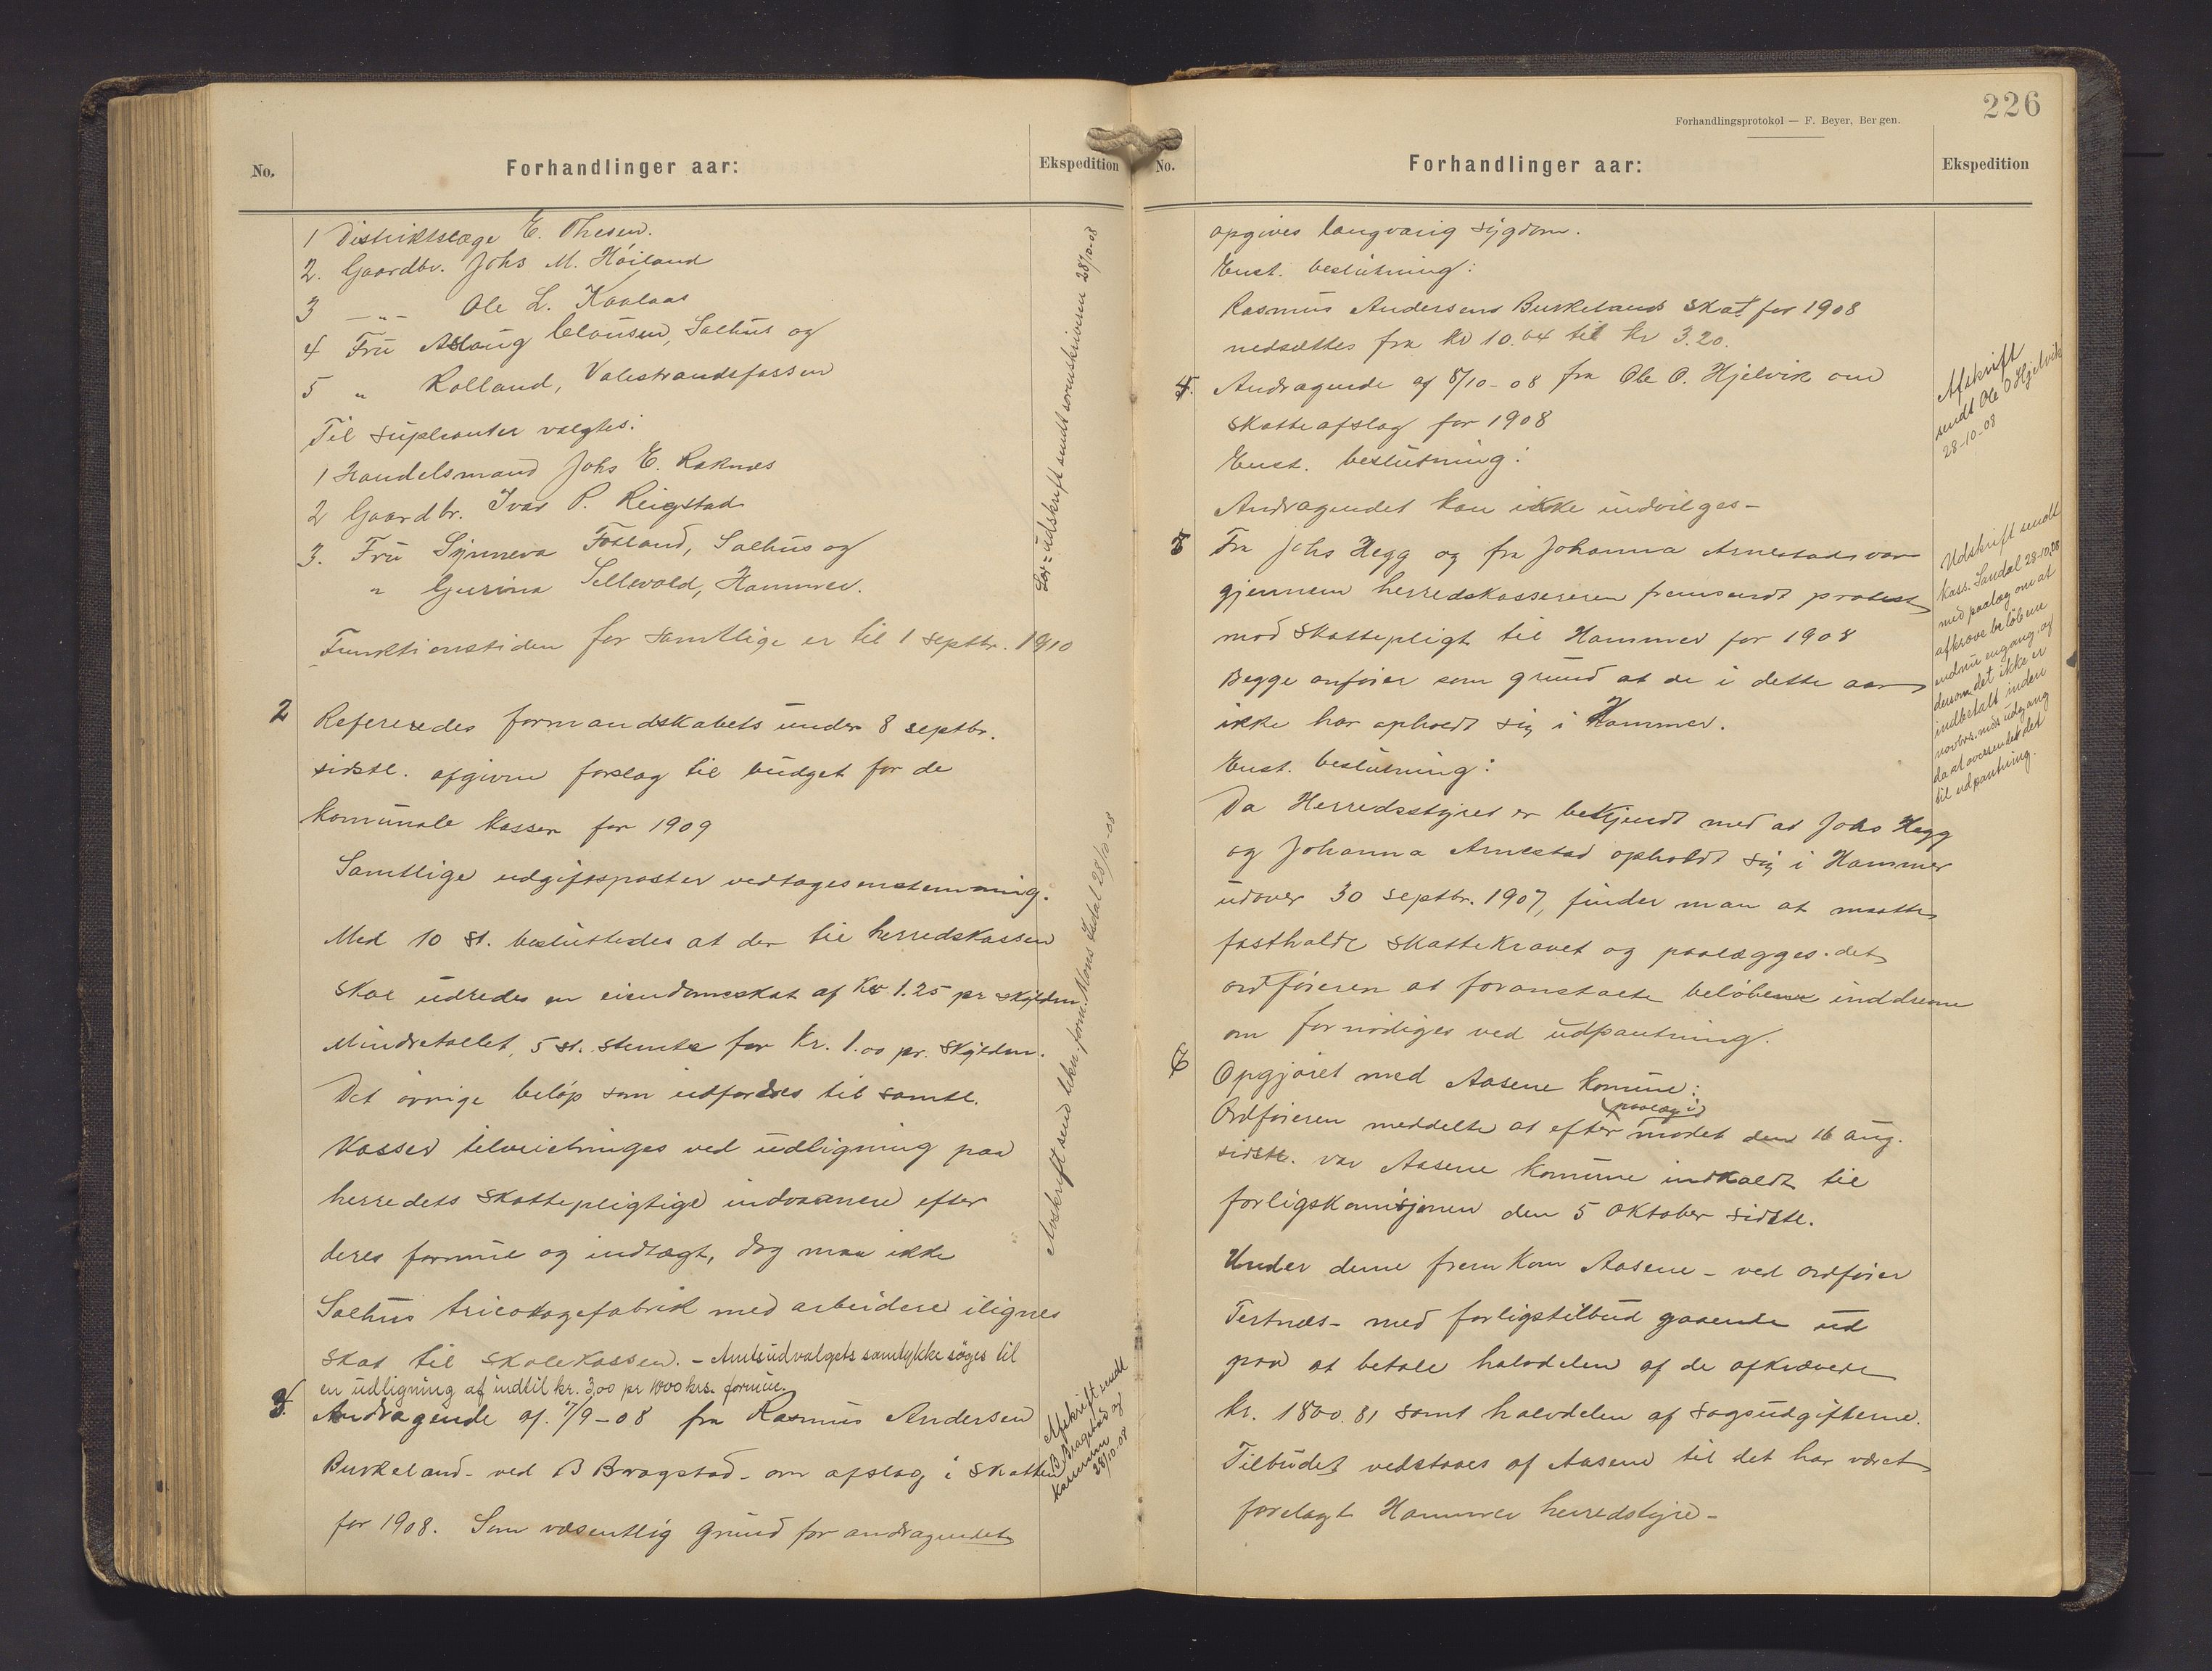 No.
Forhandlinger aar:
Ekspedition
1 Distriktslæge E. Thesen.
2. Gaardbr. Johs M. Höiland
3 -"- Ole L. Kaalaas
4 Fru Aslaug Clausen, Salhus og
5 " Rolland, Valestrandsfossen
Til supleanter valgtes:
1 Handelsmand Johs E. Raknes
2 Gaardbr. Ivar P. Reigstad
3. Fru Synneva Fosland, Salhus og
" Gurina Sellevold, Hammer.
Funktionstiden for samtlige er til 1 septbr. 1910
2 Refereredes formandskabets under 8 septbr.
sidstl. afgivne forslag til budget for de
komunale kasser for 1909
Samtlige udgiftsposter vedtages enstemmig.
Med 10 st. besluttedes at der til herredskassen
skal udredes en eiendomsskat af Kr 1.25 pr skyldm.
Mindretallet, 5 st. stemte for Kr. 1.00 pr. skyldm.
Det övrige belöp som udfordres til samtl.
kasser tilveiebringes ved udligning paa
herredets skattepligtige indvaanere efter
deres formue og indtægt, dog maa ikke
Salhus tricotagefabrik med arbeidere ilignes
skat til skolekassen. - Amtsudvalgets samtykke söges til
en udligning af indtil kr. 3,00 pr 1000 krs. formue.
3. Andragende af 7/9-08 fra Rasmus Andersen
Burkeland - ved B Bragstad - om afslag i skatten
for 1908. Som væsentlig grund for andragendet
udskrift sendt sorenskriveren 28/10-08
Avskrift send lekn. form. Mons Isdal 28/10-08
Afskrift sendt
B Bragstad og
kasserern
28/10-08
226
Forhandlingsprotokol — F. Beyer, Bergen.
No.
Forhandlinger aar:
Ekspedition
opgives langvarig sygdom.
Enst. beslutning:
Rasmus Andersens Burkelands skat for 1908
nedsættes fra kr 10.04 til kr 3.20.
4. Andragende af 8/10-08 fra Ole O. Hjelvik om
skatteafslag for 1908
Enst. beslutning:
Andragendet kan ikke indvilges -
5 Fra Johs Hegg og fra Johanna Arnestad var
gjennem herredskassereren fremsendt protest
mod skattepligt til Hammer for 1908
Begge anförer som grund at de i dette aar
ikke har opholdt sig i Hammer.
Enst. beslutning:
Da Herredsstyret er bekjendt med at Johs Hegg
og Johanna Arnestad opholdt sig i Hammer
udover 30 septbr. 1907, finder man at maatte
fastholde skattekravet og paalægges det
ordföreren at foranstalte belöbene inddrevne
om fornödiges ved udpantning.
6 Opgjöret med Aasene komune:
Ordföreren meddelte at efter (paalæg i) mödet den 16 aug.
sidstl. var Aasene komune indkaldt til
forligskomisjonen den 5 Oktober sidstl.
Under denne fremkom Aasene - ved ordförer
Tertnæs - med forligstilbud gaaende ud
paa at betale halvdelen af de afkrævede
kr. 1800.81 samt halvdelen af sagsudgifterne.
Tilbudet vedstaaes af Aasene til det har været
forelagt Hammer herredsstyre -
Afskrift
sendt Ole O Hjelvik
28-10-08
Udskrift sendt
kass. Sandal 28-10,08
med paalæg om at
afkræve belöbene
endnu engang og
dersom det ikke er
indbetalt inden
novbr. mds udgang
da at oversende det
til udpantning.